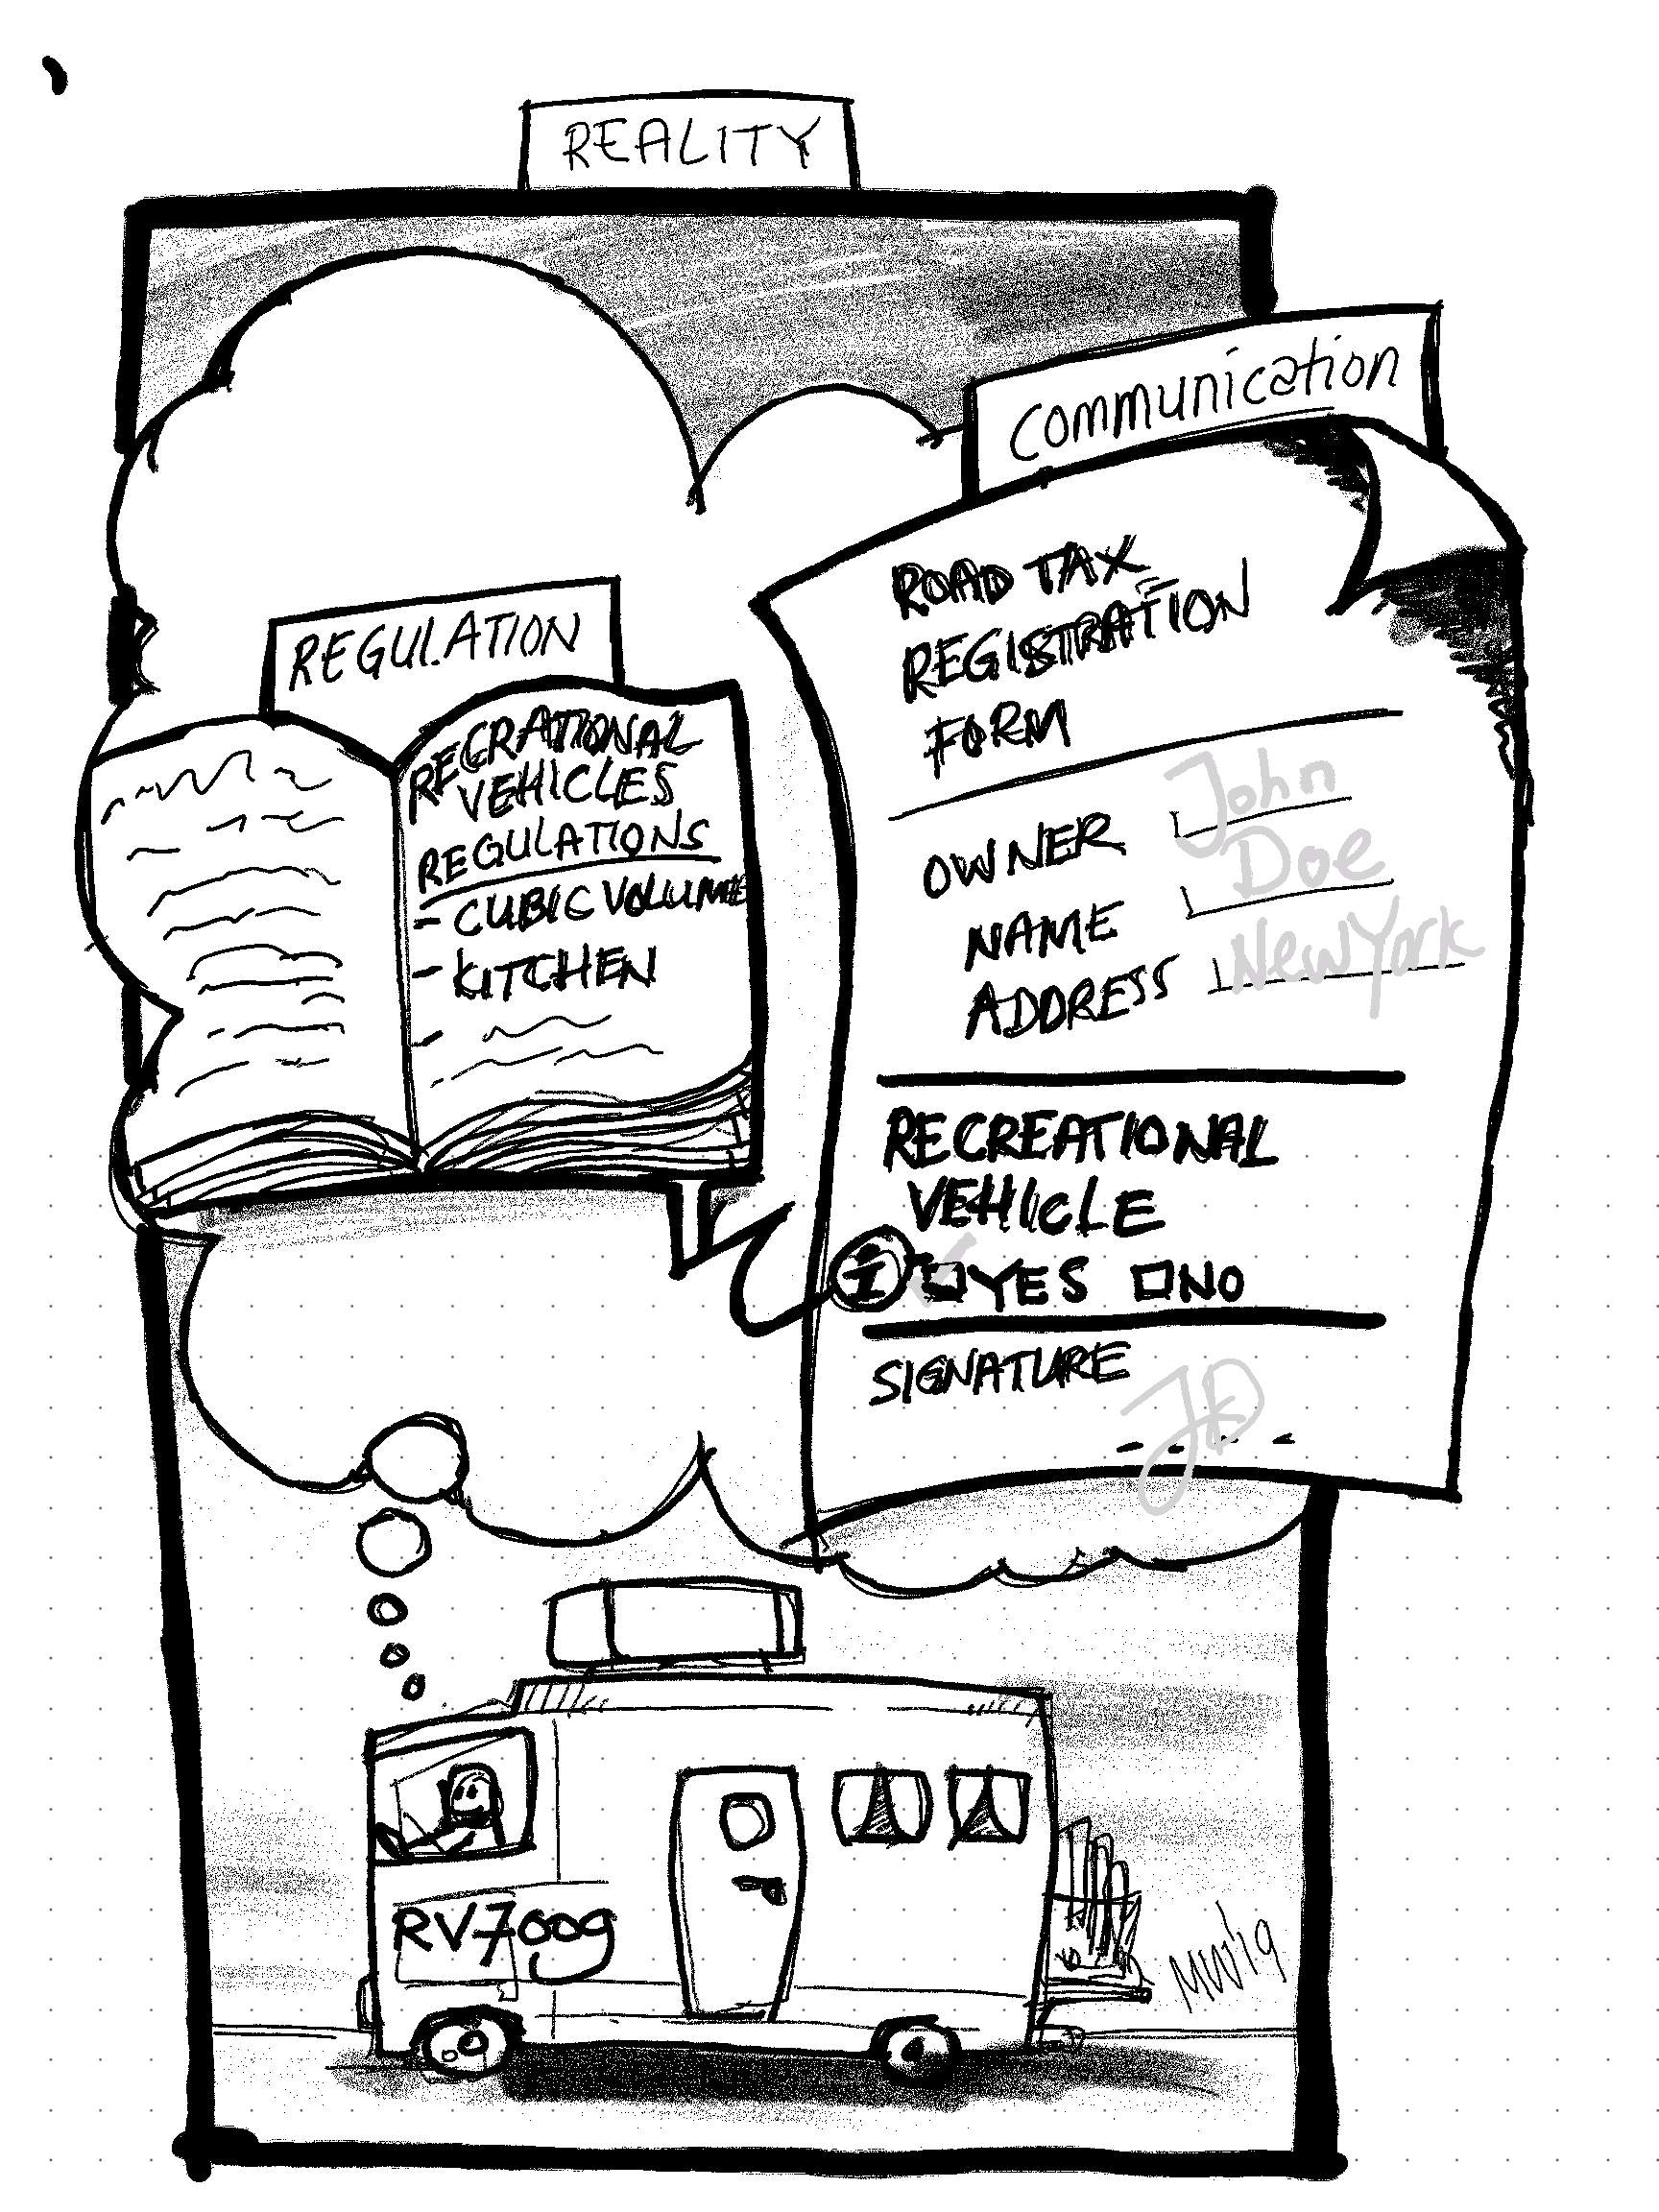 REALITY
Communication
REGULATION
RECRATIONAL
VEHICLES
REGULATIONS
- CUBIC VOLUME
- KITCHEN
-
ROAD TAX
REGISTRATION
FORM
OWNER John
NAME Doe
ADDRESS New York
RECREATIONAL
VEHICLE
i YES NO
SIGNATURE JD
RV7009
MW'19